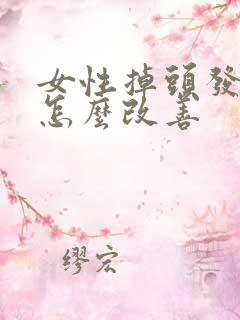 女性掉頭發
怎麼改善
缪宏